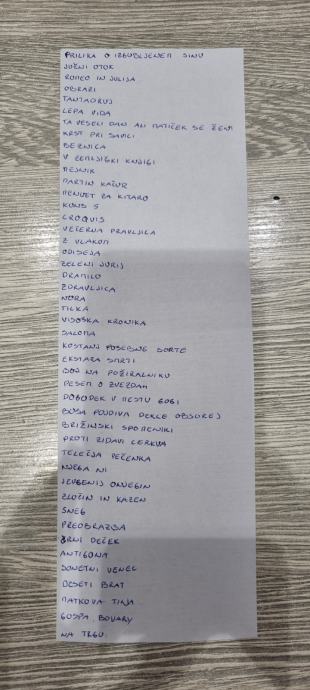 PRILIKA O IZGUBLJENEM SINU
JUŽNI OTOK
ROMEO IN JULIJA
OBRAZI
TANTADRUJ
LEPA VIDA
TA VESELI DAN ALI MATIČEK SE ŽENI
KRST PRI SAVICI
BERAČICA
V ZEMLJIŠKI KNJIGI
MEJNIK
MARTIN KAČUR
MENUET ZA KITARO
KONS 5
CROQUIS
VEČERNA PRAVLJICA
Z VLAKOM
ODISEJA
ZELENI JURIJ
DRAMILO
ZDRAVLJICA
NORA
TILKA
VISOŠKA KRONIKA
SALOMA
KOSTANJ POSEBNE SORTE
EKSTAZA SMRTI
BOJ NA POŽIRALNIKU
PESEM O ZVEZDAH
DOGODEK V MESTU GOGI
BOSA POJDIVA DEKLE OBSOREJ
BRIŽINSKI SPOMENIKI
PROTI ZIDAVI CERKVA
TELEČJA PEČENKA
NJEGA NI
JEVGENIJ ONJEGIN
ZLOČIN IN KAZEN
SNEG
PREOBRAZBA
ČRNI DEČEK
ANTIGONA
SONETNI VENEC
DESETI BRAT
MATKOVA TINA
GOSPA BOVARY
NA TRGU